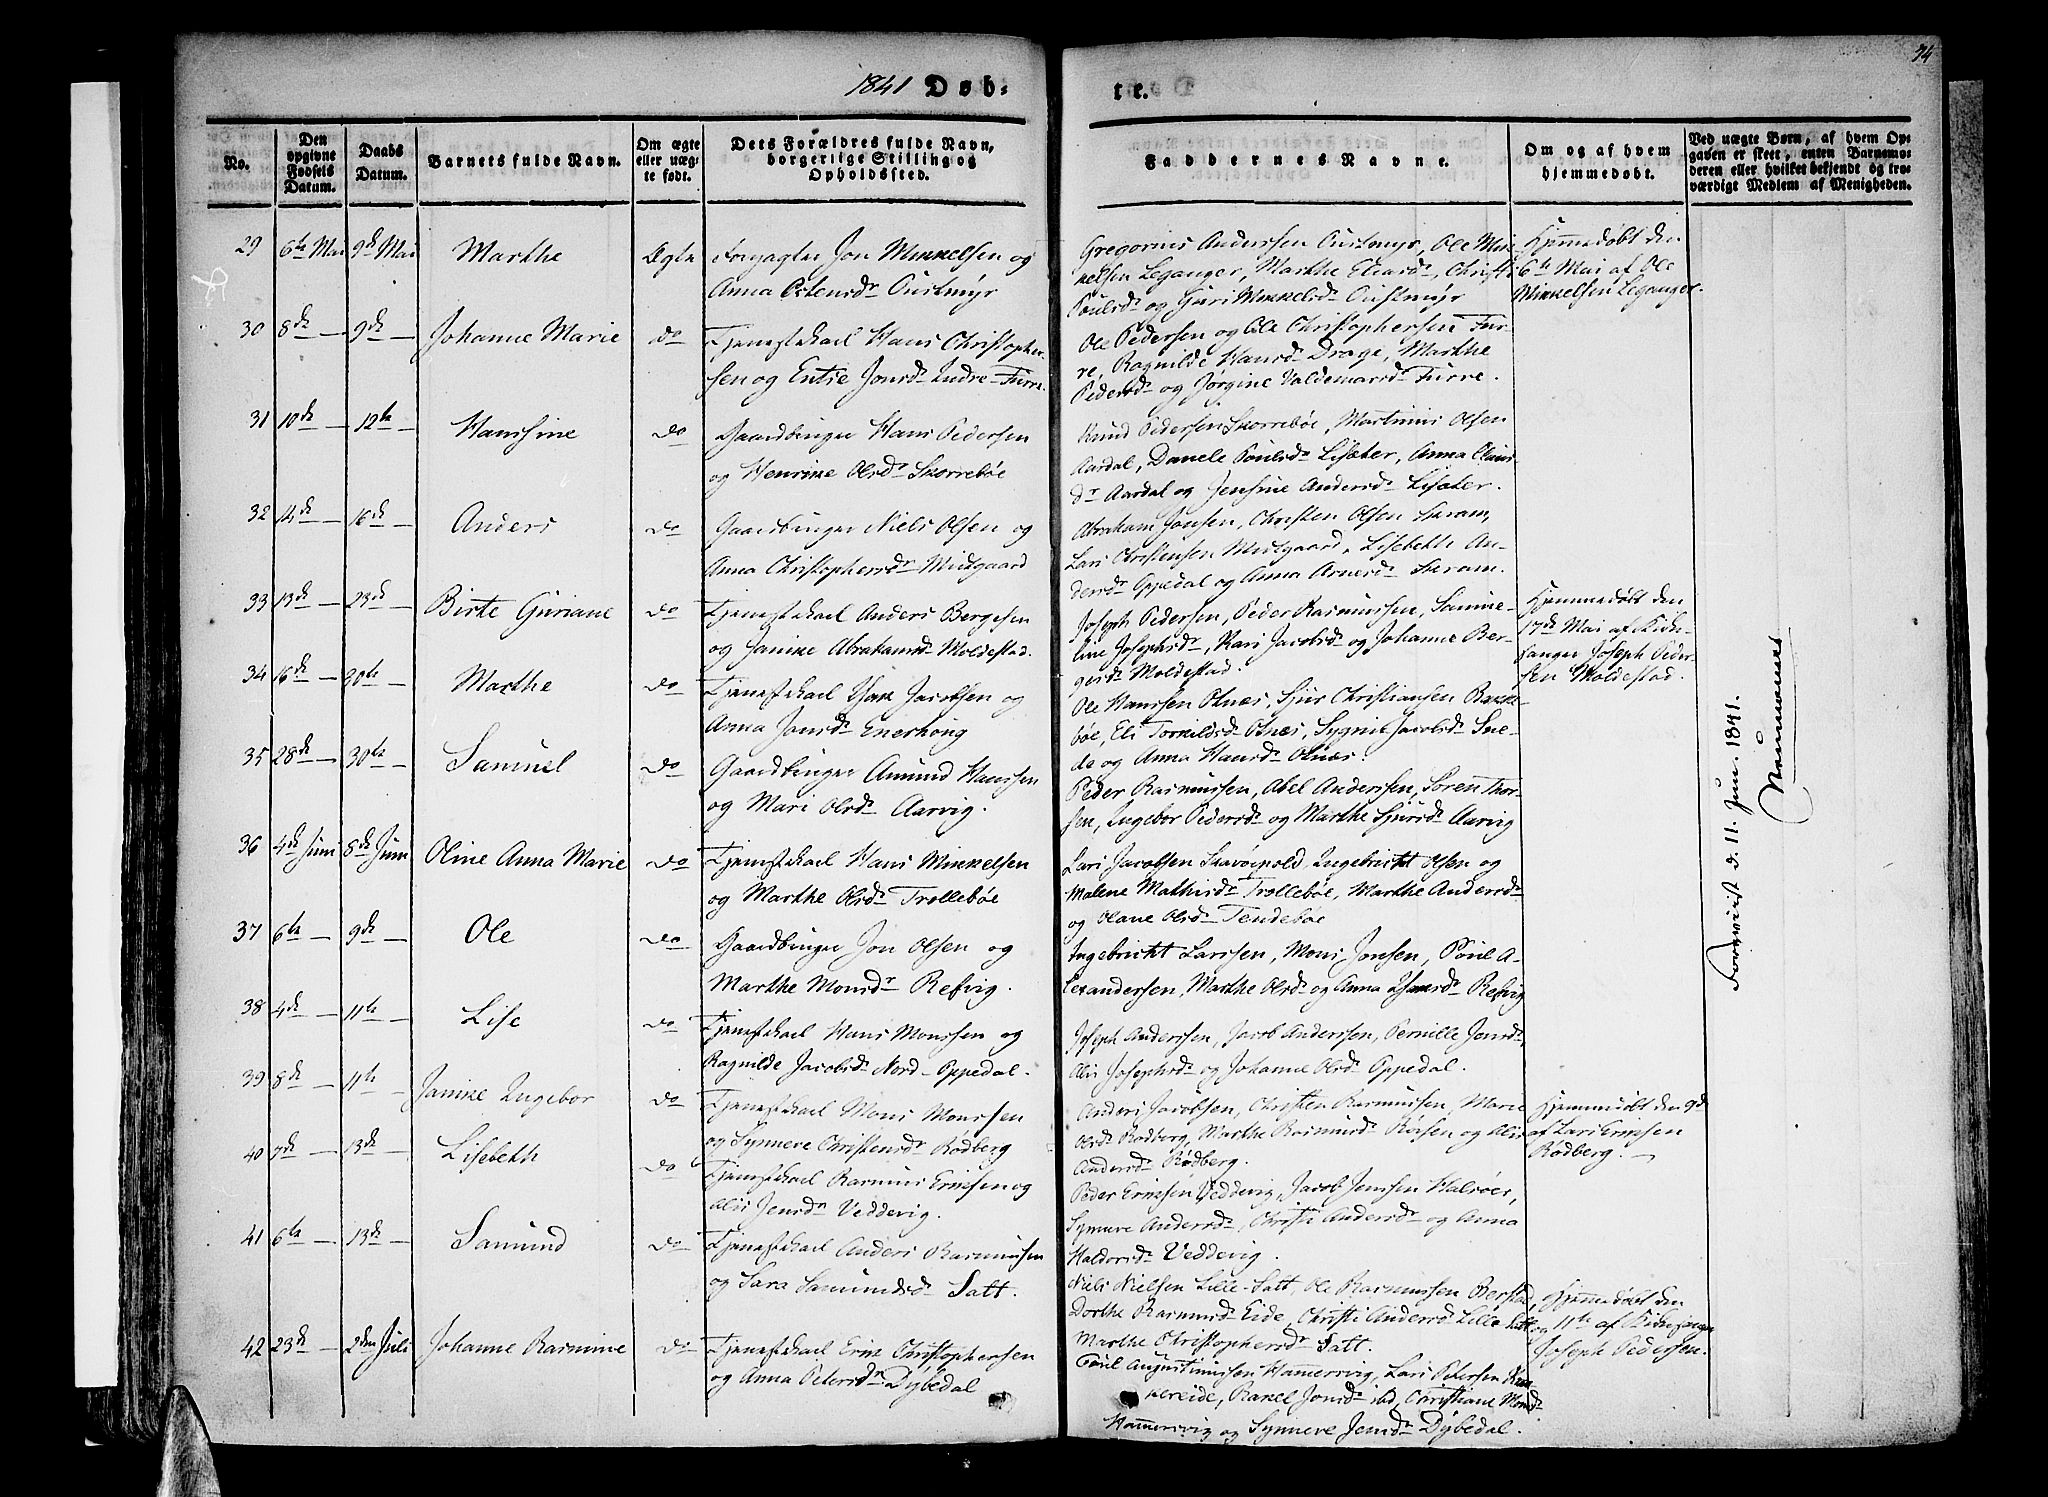 34
1841 Døb-
te.
No.
Den opgivne Fødsels Datum.
Daabs Datum.
Barnets fulde Navn.
Om ægte eller uægte født.
Dets Forældres fulde Navn, borgerlige Stilling og Opholdssted.
Faddernes Navne.
Om og af hvem hjemmedøbt.
Ved uægte Børn, af hvem Opgaven er skeet, enten Barnemoderen eller hvilket bekjendt og troværdigt Medlem af Menigheden.
29 6te Mai 9de Mai Marthe Ægte
Jon Mikkelsen og
Anna Ostensdr
Gregorius Anderssen Oustmyr, Ole Mik-
kelsen Leganger, Marthe Eliasdr, Christi
Poulsdr og Guri Mikkelsdr Oustmyr
Hjemmedøbt den
6te Mai af Ole
Mikkelsen Leganger.
30 8de — 9de — Johanne Marie do
Tjenestekarl Hans Christopher-
sen og Entie Jonsdr Indre-Furre
Ole Pedersen og Ole Christophersen Fur-
re, Ragnilde Hansdr Drage, Marthe
Pedersdr og Jørgine Valdemarsdr Furre.
31 10de — 12te — Hansine do
Gaardbruger Hans Pedersen
og Henrikke Olsdr Skorrebøe
Knud Pedersen Skorrebøe, Martinus Olsen
Aardal, Danele Poulsdr Lisæter, Anna Claus-
dr Aardal og Jensine Andersdr Lisæter.
32 14de — 16de — Anders do
Gaardbruger Niels Olsen og
Anna Christophersdr Midgaard
Abraham Jonsen, Christen Olsen Skram,
Lars Christensen Midtgaard, Lisebeth An-
dersdr Oppedal og Anna Arnesdr Skram.
33 13de — 23de — Birte Guriane do
Tjenestekarl Anders Bergesen
og Janike Abrahamsdr Moldestad.
Joseph Pedersen, Peder Rasmussen, Samine-
line Josephsdr, Kari Jacobsdr og Johanne Ber-
gesdr Moldestad.
Hjemmedøbt den
17de Mai af Kirke-
sanger Joseph Peder-
sen Moldestad.
34 16de — 30te — Marthe do
Tjenestekarl Isak Jacobsen og
Anna Jonsdr Enerhoug
Ole Hanssen Osnæs, Sjur Christiansen Bakke-
bøe, Eli Torkildsdr Osnæs, Sygni Jacobsdr Sne-
de og Anna Hansdr Osnæs.
35 28de — 30te — Samuel do
Gaardbruger Amund Hanssen
og Mari Olsdr Aarvig.
Peder Rasmussen, Abel Anderssen, Søren Thor-
sen, Ingebor Pedersdr og Marthe Sjursdr Aarvig
36 4de Juni 8de Juni Oline Anna Marie do
Tjenestekarl Hans Mikkelsen
og Marthe Olsdr Trollebøe
Lars Jacobsen Skavøepold, Ingebricht Olsen og
Malene Mathisdr Trollebøe, Marthe Andersdr
og Olane Olsdr Tendebøe
37 6te — 9de — Ole do
Gaardbruger Jon Olsen og
Marthe Monsdr Refvig.
Ingebricht Larssen, Mons Jonsen, Poul A-
lexandersen, Marthe Olsdr og Anna Isaksdr Refvig
38 4de — 11te — Lise do
Tjenestekarl Hans Monssen og
Ragnilde Jacobsdr Nord-Oppedal.
Joseph Anderssen, Jacob Anderssen, Pernille Jonsdr,
Alis Josephsdr og Johanne Olsdr Oppedal.
39 8de — 11te — Janike Ingebor do
Tjenestekarl Mons Monssen
og Synneve Christensdr Rødberg
Anders Jacobsen, Christen Rasmussen, Mari
Olsdr Rødberg, Marthe Rasmusdr Rorsen og Alis
Andersdr Rødberg.
Hjemmedøbt den 9de
af Lars Eriksen
Rødberg. —
40 7de — 13de — Lisebeth do
Tjenestekarl Rasmus Eriksen og
Alis Jensdr Veddevig.
Peder Eriksen Veddevig, Jacob Jenssen Halsøer,
Synneve Andersdr, Christi Andersdr og Anna
Haldorsdr Veddevig.
41 6te — 13de — Samund do
Tjenestekarl Anders Rasmussen
og Sara Samundsdr Satt.
Niels Nielsen Lille-Satt, Ole Rasmussen Berstad,
Dorthe Rasmusdr Eide, Christi Andersdr Lille Satt og
Marthe Christophersdr Satt.
Hjemmedøbt den
11te af Kirkesanger
Joseph Pedersen.
42 23de — 2den Juli Johanne Rasmine do
Tjenestekarl Erik Christophersen
og Anna Petersdr Dybedal
Poul Augustinussen Hamersvig, Lars Petersen
kereide, Rakel Jonsdr ibd, Christiane Monsdr
Hamersvig og Synneve Jensdr Dybedal.
Foreviist d. 11. Jun. 1841.